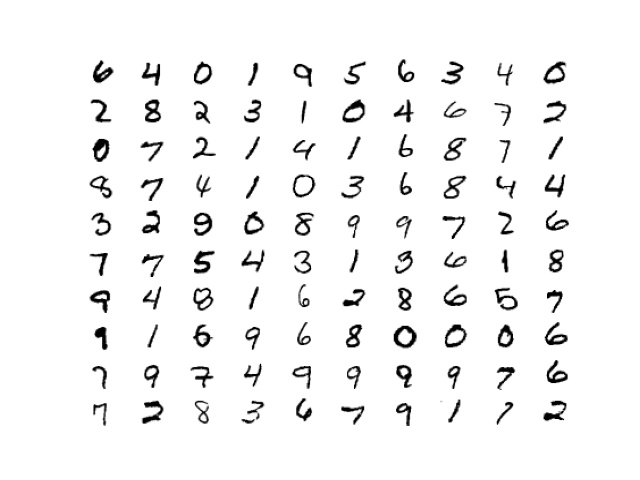 6 4 0 1 9 5 6 3 4 0
2 8 2 3 1 0 4 6 7 2
0 7 2 1 4 1 6 8 7 1
8 7 4 1 0 3 6 8 4 4
3 2 9 0 8 9 9 7 2 6
7 7 5 4 3 1 3 6 1 8
9 4 8 1 6 2 8 6 5 7
9 1 6 9 6 8 0 0 0 6
7 9 7 4 9 9 9 9 7 6
7 2 8 3 6 7 9 1 7 2